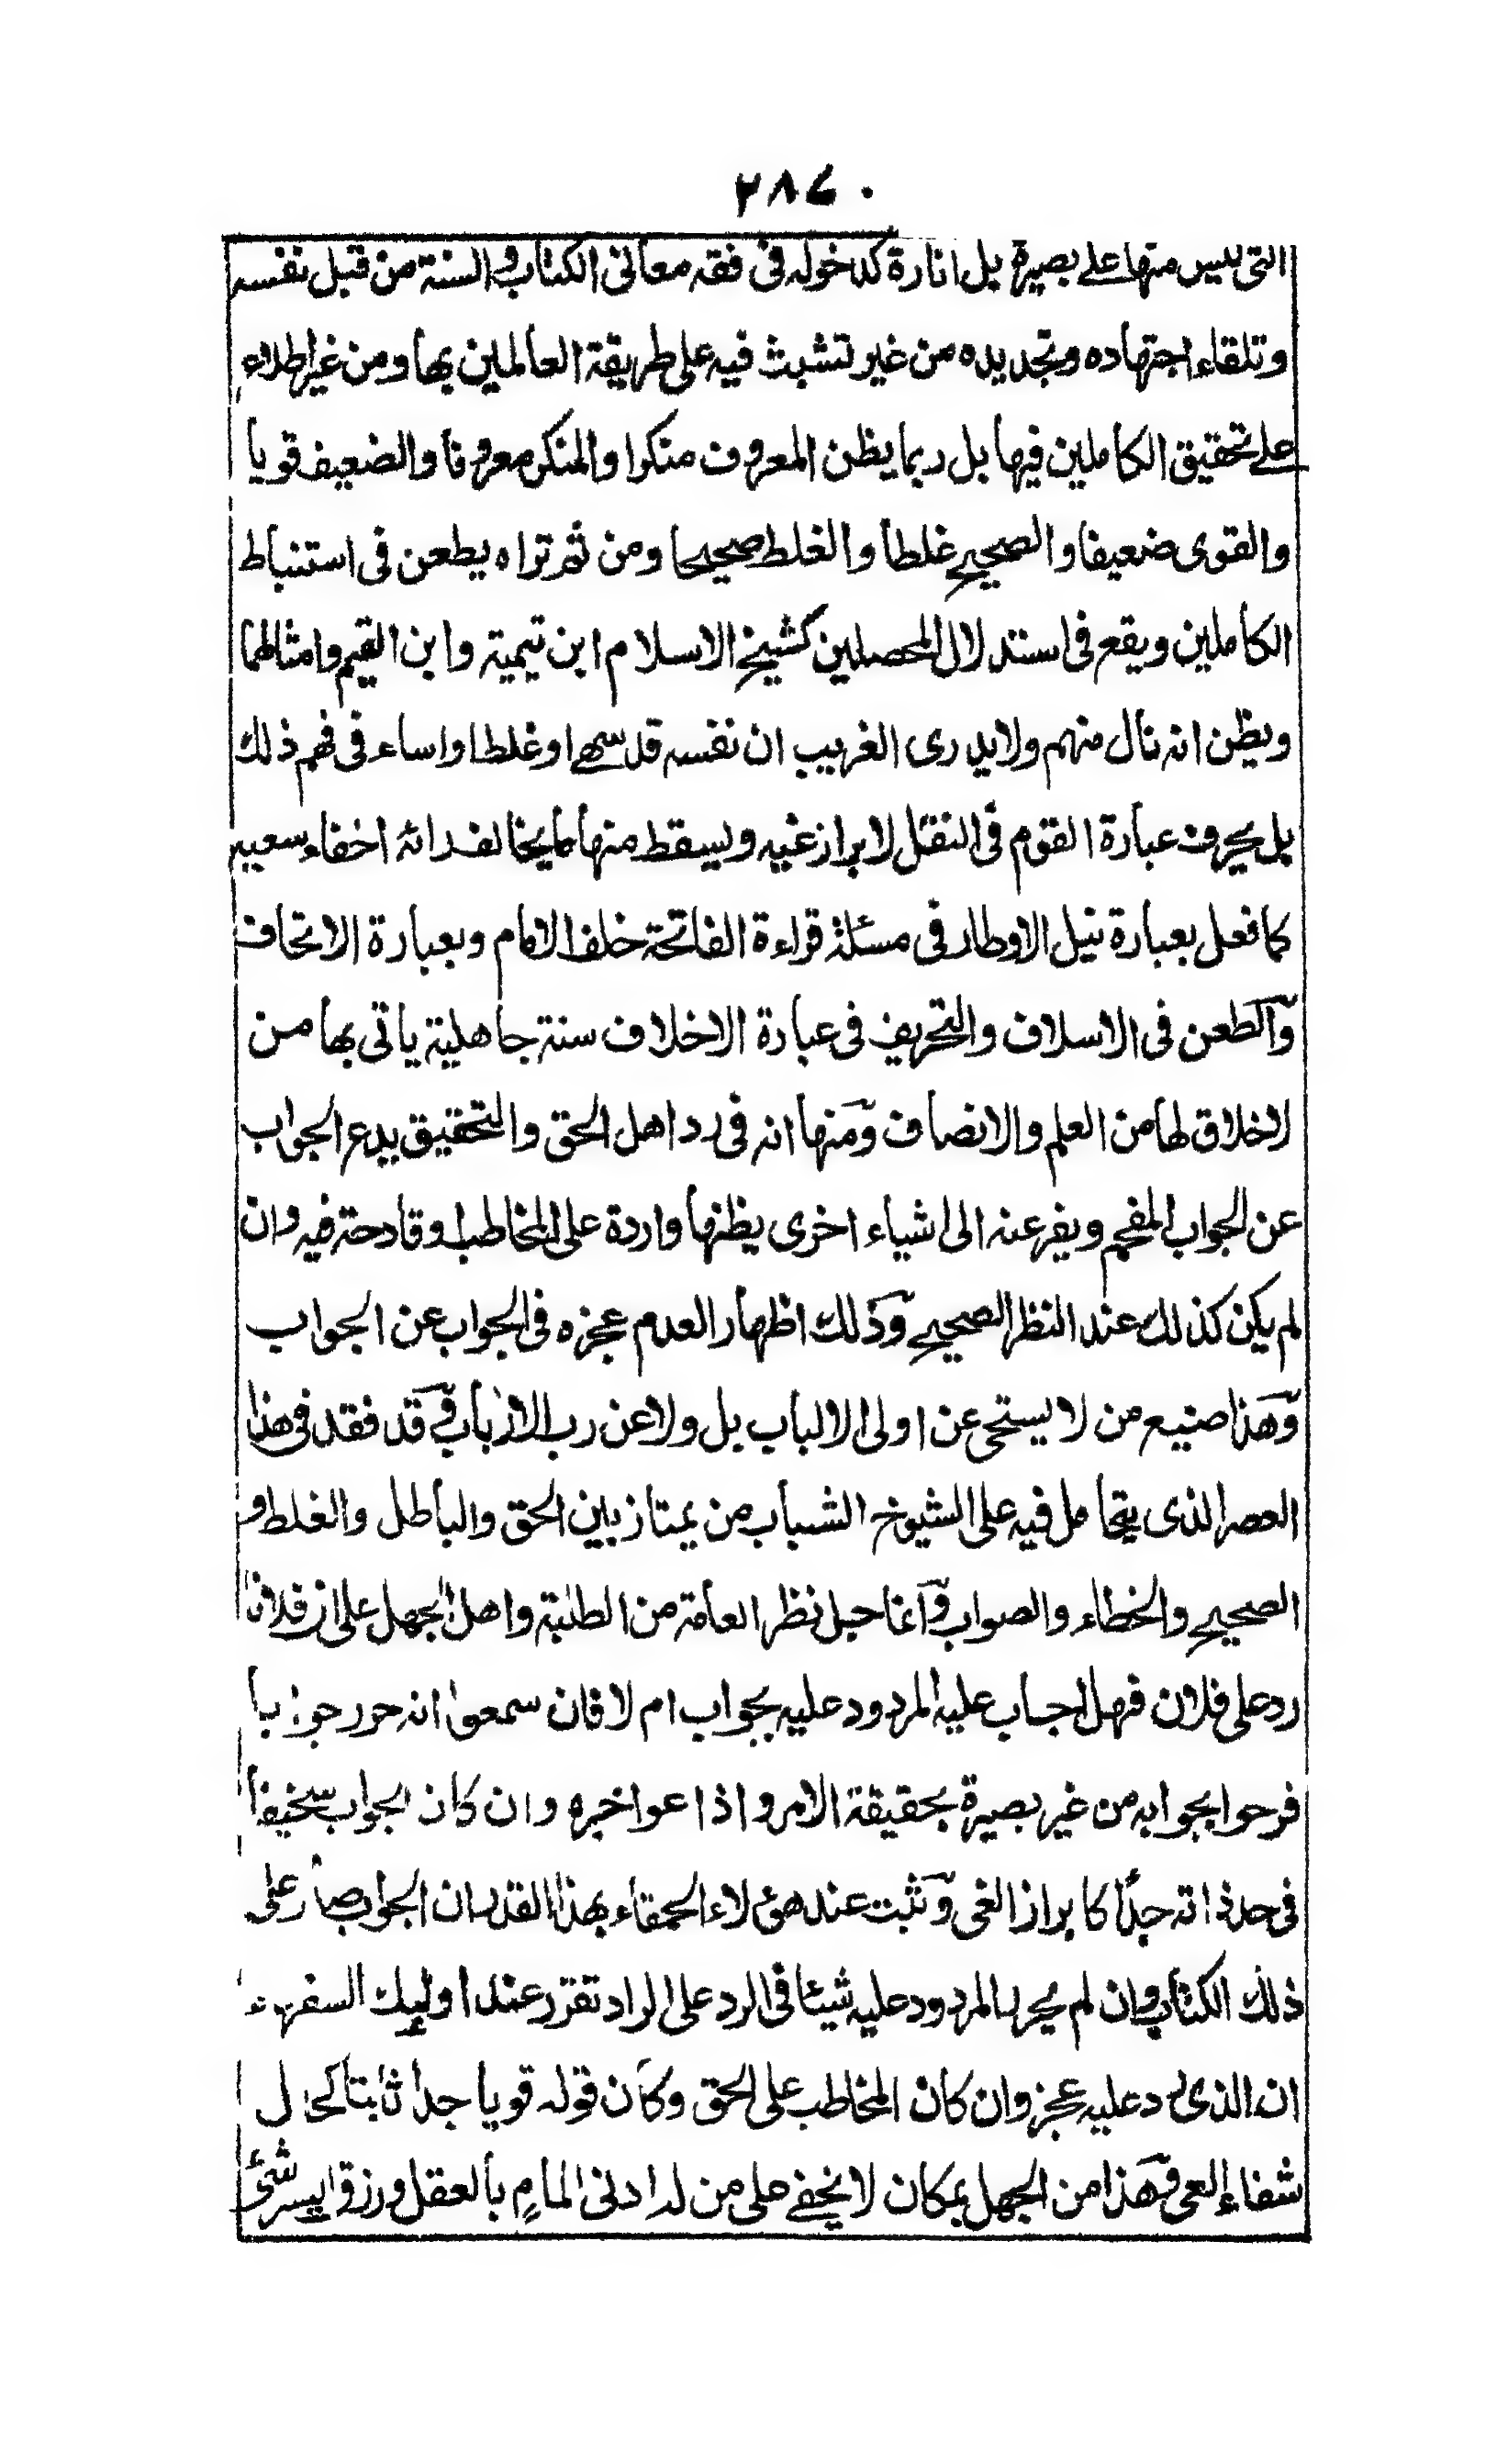 ٢٨٤
التى ليس منها على بصيرة بل انارة كدخوله فى فقه معانى الكتاب والسنة من قبل نفسه
وتلقاء اجتهاده وتجديده من غير تشبث فيه على طريقة العالمين بها ومن غير اطلاع
على تحقيق الكاملين فيها بل ربما يظن المعروف منكرا والمنكر معروفا والضعيف قويا
والقوى ضعيفا والصحيح غلطا والغلط صحيحا ومن ثم تراه يطعن فى استنباط
الكاملين ويقع فى استدلال المحصلين كشيخ الاسلام ابن تيمية وابن القيم وامثالهما
ويظن انه نال منهم ولا يدرى الغريب ان نفسه قد سها وغلط او اساء فى فهم ذلك
بل يحرف عبارة القوم فى النقل لابراز غيه ويسقط منها ما يخالف رائه اخفاء سعيه
كما فعل بعبارة نيل الاوطار فى مسئلة قراءة الفاتحة خلف الامام وبعبارة الاتحاف
والطعن فى الاسلاف والتحريف فى عبارة الاخلاف سنة جاهلية ياتى بها من
لا خلاق لها من العلم والانصاف ومنها انه فى رد اهل الحق والتحقيق يدع الجواب
عن الجواب المفحم ويفر عنه الى اشياء اخرى يظنها واردة على المخاطب وقادحة فيه وان
لم يكن كذلك عند النظر الصحيح وذلك اظهار العدم عجزه فى الجواب عن الجواب
وهذا صنيع من لا يستحى عن اولى الالباب بل ولا عن رب الارباب وقد فقد فى هذا
العصر الذى يتحامل فيه على الشيوخ الشباب من يمتاز بين الحق والباطل والغلط و
الصحيح والخطاء والصواب وانما حبل نظر العامة من الطلبة واهل الجهل على ان فلانا
رد على فلان فهل اجاب عليه المردود عليه بجواب ام لا فان سمعوا انه حرر جوابا
فرحوا بجوابه من غير بصيرة بحقيقة الامر واذاعوا خبره وان كان الجواب سخيفا
فى حد ذاته جدا كابراز الغى وثبت عند هؤلاء الحمقاء بهذا القدر ان الجواب صار على
ذلك الكتاب وان لم يحرر المردود عليه شيئا فى الرد على الراد تقرر عند اولئك السفهاء
ان الذى رد عليه عجز وان كان المخاطب على الحق وكان قوله قويا جدا ثابتا كحال
شفاء العى وهذا من الجهل بمكان لا يخفى على من له ادنى المام بالعقل ورزق ايسر شئ